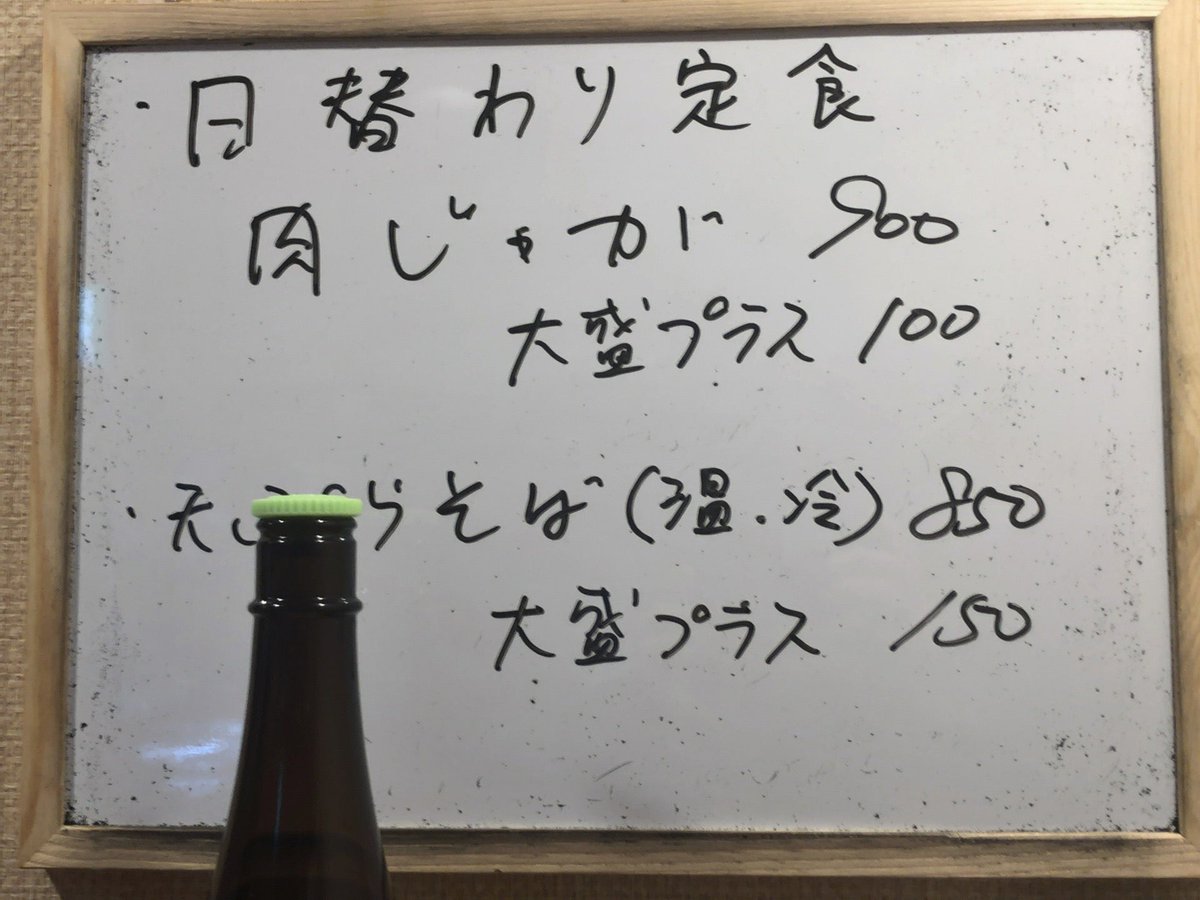 ・日替わり定食
肉じゃが 900
大盛プラス 100
・天ぷらそば(温・冷) 850
大盛プラス 150